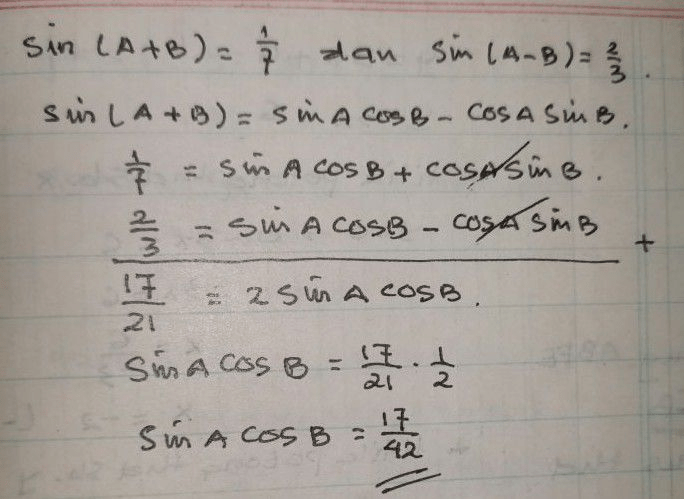 sin (A+B) = 1/7 dan sin (A-B) = 2/3.
sin (A+B) = sin A cos B - cos A sin B.
1/7 = sin A cos B + cos A sin B.
2/3 = sin A cos B - cos A sin B +
17/21 = 2 sin A cos B.
sin A cos B = 17/21 . 1/2
sin A cos B = 17/42